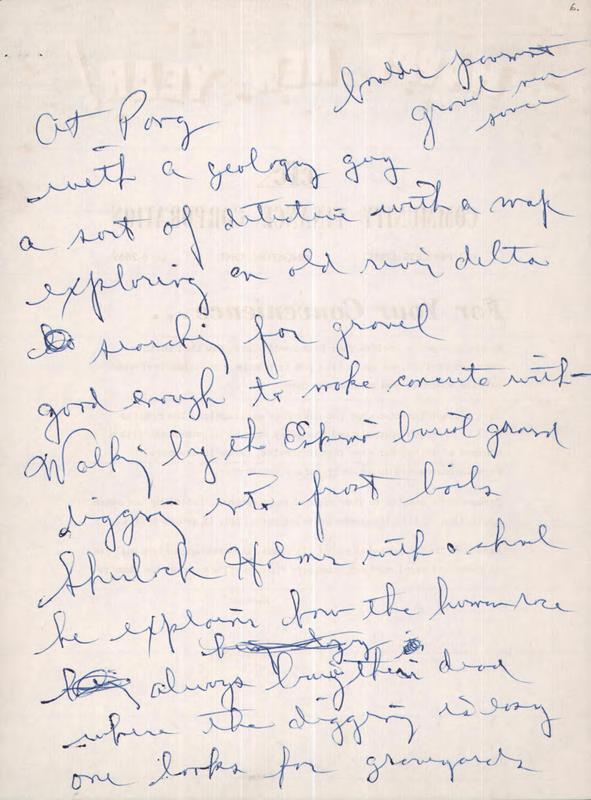 6.
gravel
At Pong
with a geology guy
a sort of detetive with a map
exploring an old river delta
searching for gravel
good enough to make concrete with
Walking by the Eskimo burial ground
digging into frost boils
Sherlock Holmes with a shovel
he explains how the human race
always bury their dead
where the digging is easy
one looks for graveyards